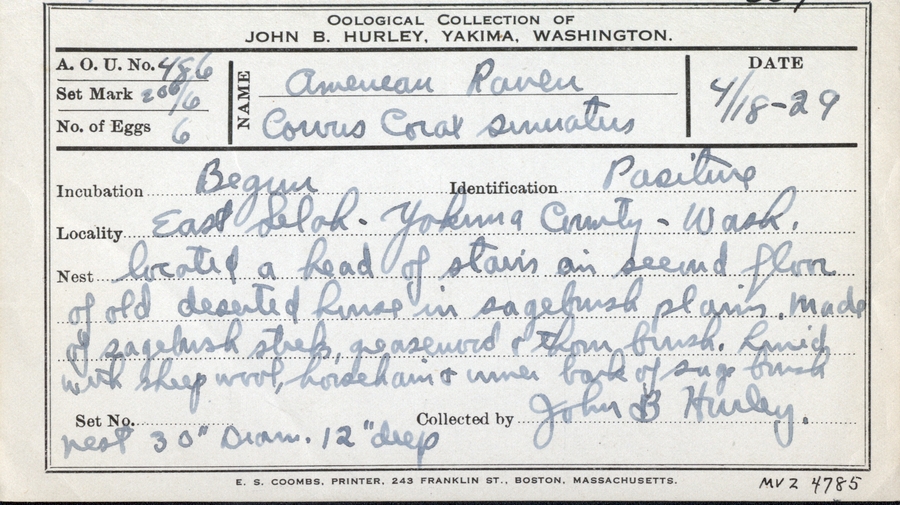 OOLOGICAL COLLECTION OF
JOHN B. HURLEY, YAKIMA, WASHINGTON.
A. O. U. No. 486
Set Mark 200/6
No. of Eggs 6
NAME American Raven
Corvus Corax sinuatus
DATE
4/18-29
Incubation Begun Identification Positive
Locality East Selah - Yakima County - Wash.
Nest located a head of stairs on second floor
of old deserted house in sagebrush plains. Made
of sagebrush sticks, greasewood & thorn brush. Lined
with sheep wool, horsehair & inner bark of sage brush
Set No. Collected by John B Hurley.
nest 30" Diam. 12" deep
E. S. COOMBS, PRINTER, 243 FRANKLIN ST., BOSTON, MASSACHUSETTS.
MVZ 4785